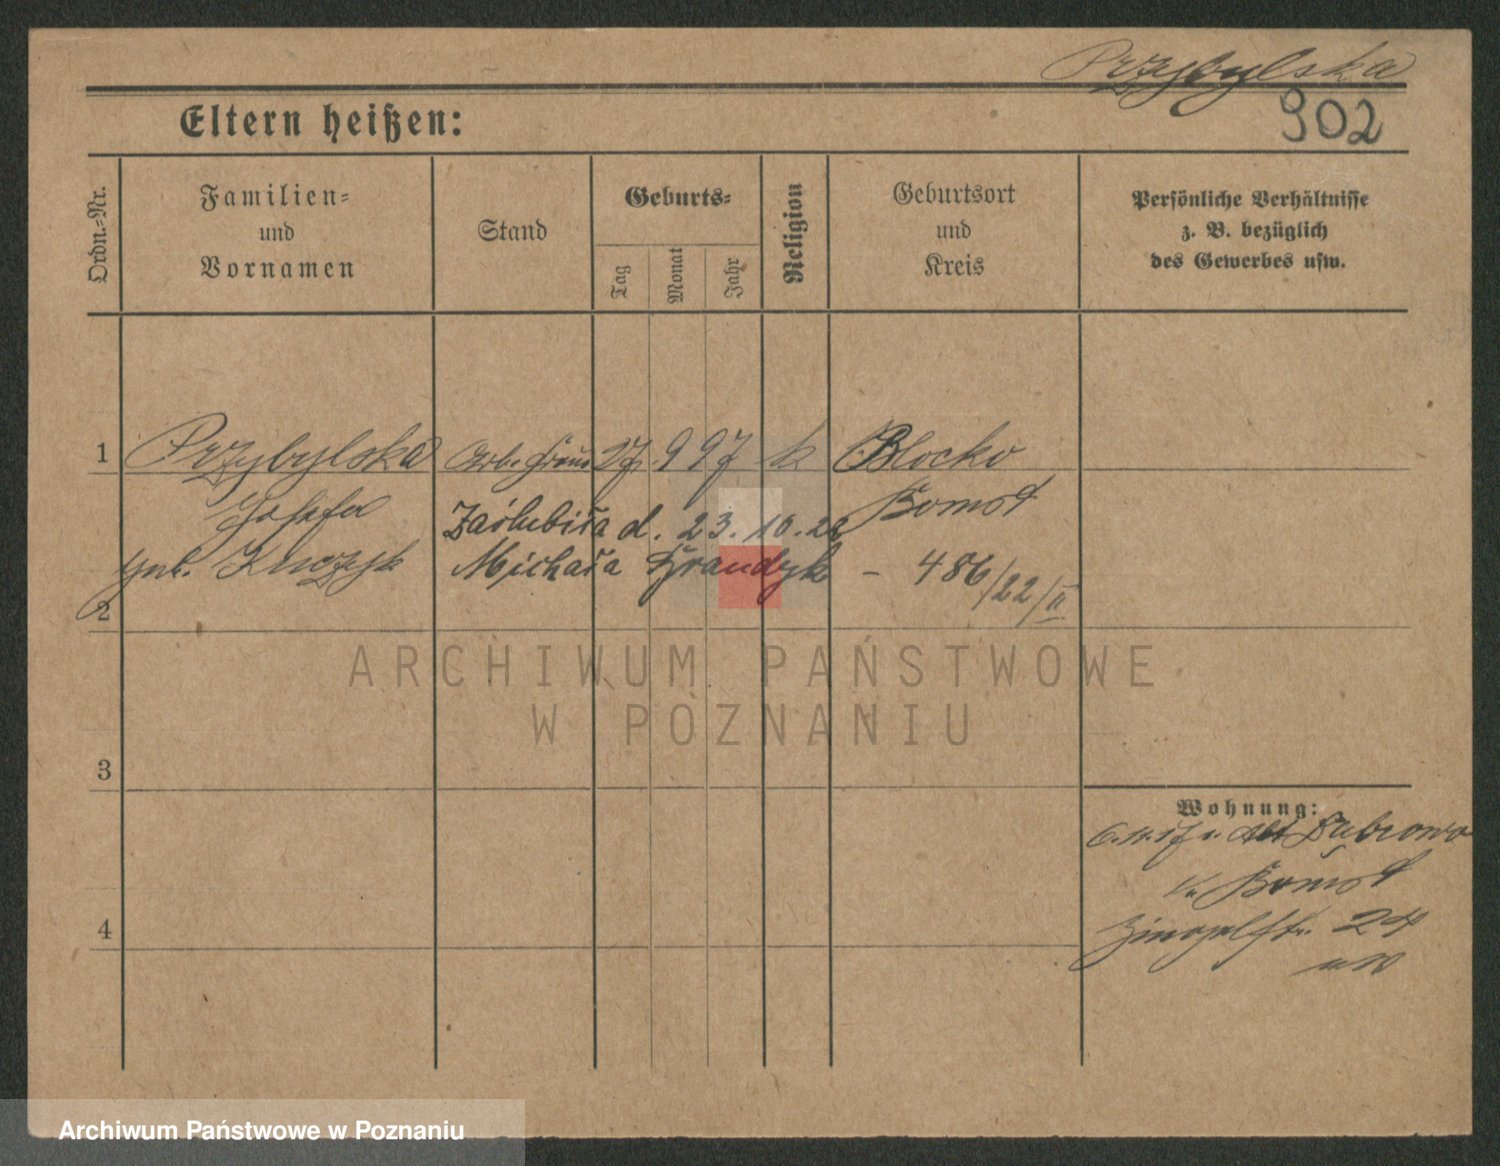 Przybylska
902
Eltern heißen:
Ordn.-Nr.
Familien-
und
Vornamen
Stand
Geburts-
Tag
Monat
Jahr
Religion
Geburtsort
und
Kreis
Persönliche Verhältnisse
z. B. bezüglich
des Gewerbes usw.
1 Przybylska 27 9 97 k Blocko
Josefa Bomst
Zaślubiła d. 23.10.22
geb.
Michała - 486/22/II
2
ARCHIWUM PAŃSTWOWE
W POZNANIU
3
Wohnung:
Alt Dubrowo
Bomst
24
4
Archiwum Państwowe w Poznaniu